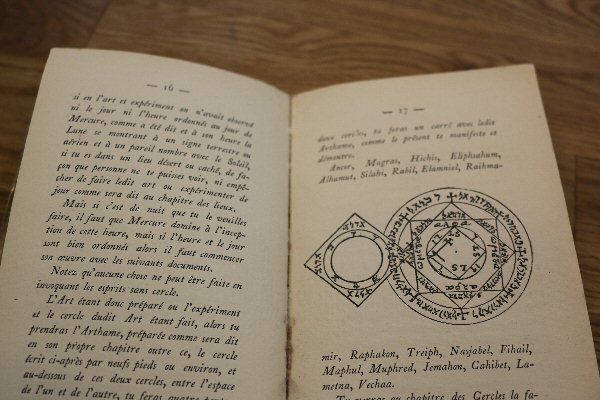 — 16 —
si en l'art et expériment on n'avait observé
ni le jour ni l'heure ordonnés au jour de
Mercure, comme a été dit et à son heure la
Lune se montrant à un signe terrestre ou
aérien et à un pareil nombre avec le Soleil,
si tu es dans un lieu désert ou caché, de fa-
çon que personne ne te puisses voir, ni empê-
cher de faire ledit art ou expérimenter de
jour comme sera dit au chapitre des lieux.
Mais si c'est de nuit que tu le veuilles
faire, il faut que Mercure domine à l'incep-
tion de cette heure, mais si l'heure et le jour
sont bien ordonnés alors il faut commencer
son œuvre avec les suivants documents.
Notez qu'aucune chose ne peut être faite en
invoquant les esprits sans cercle.
L'Art étant donc préparé ou l'expériment
et le cercle dudit Art étant fait, alors tu
prendras l'Arthame, préparée comme sera dit
en son propre chapitre outre ce, le cercle
écrit ci-après par neufs pieds ou environ, et
au-dessous de ces deux cercles, entre l'espace
de l'un et de l'autre, tu feras quatre
— 17 —
deux cercles, tu feras un carré avec ledit
Arthame, comme le présent te manifeste et
démontre.
Ancor, Magras, Hichis, Eliphsahum,
Alhamut, Silahi, Rabil, Elamniel, Raihma-
mir, Raphakon, Treiph, Nasjabel, Fihail,
Maphul, Muphred, Jemahon, Gahibet, La-
metna, Vechaa.
Tu verras au chapitre des Cercles la fa-